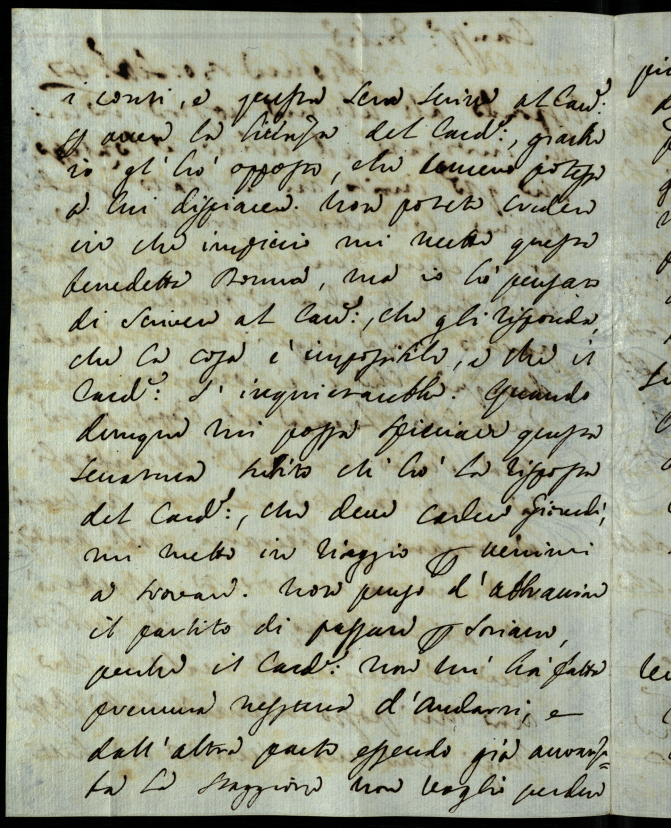 i conti, e questa sera scrive al Card:
p aver la risposta del Card:, giacché
io gl'hò opposto, che temevo potesse
a lui dispiacere. Non potete credere
in che impiccio mi mette questa
benedetta Donna, mà io hò pensato
di scrivere al Card:, che gli risponda,
che la cosa è impossibile, e che il
Card: s'inquieterebbe. Quando
dunque mi possa spicciare questa
seccatura subito ch'hò la risposta
del Card:, che deve cadere Giovedì,
mi metto in viaggio p venirvi
a trovare. Non penso d'abbracciare
il partito di passare p Soriano,
perché il Card: non mi hà fatta
premura nessuna d'andarvi, e
dall'altra parte essendo già avanza=
ta la staggione non voglio perdere